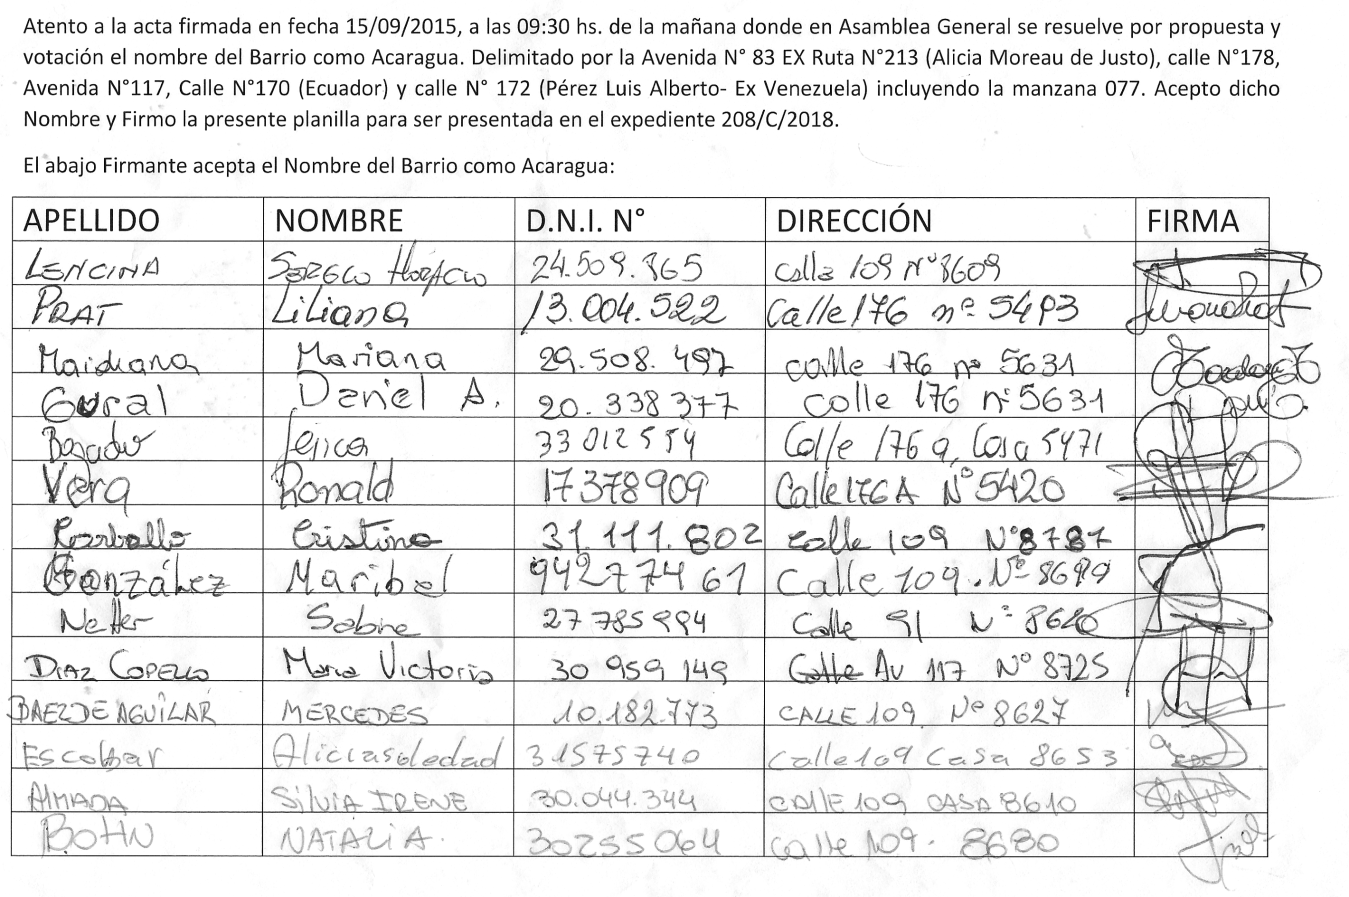 Atento a la acta firmada en fecha 15/09/2015, a las 09:30 hs. de la mañana donde en Asamblea General se resuelve por propuesta y
votación el nombre del Barrio como Acaragua. Delimitado por la Avenida N° 83 EX Ruta N°213 (Alicia Moreau de Justo), calle N°178,
Avenida N°117, Calle N°170 (Ecuador) y calle N° 172 (Pérez Luis Alberto- Ex Venezuela) incluyendo la manzana 077. Acepto dicho
Nombre y Firmo la presente planilla para ser presentada en el expediente 208/C/2018.
El abajo Firmante acepta el Nombre del Barrio como Acaragua:
APELLIDO NOMBRE D.N.I. N° DIRECCIÓN FIRMA
LENCINA Horacio 24.509.365 calle 109 N° 8609
PRAT Liliana 13.004.522 Calle 176 nº 5493
Maidana Mariana 29.508.497 calle 176 nº 5631
Gural Daniel A. 20.338377 calle 176 nº 5631
33 012 554 Calle 176 a, Casa 5471
Vera Ronald 17378909 Calle 176 A N° 5420
Carballo Cristina 31.111.802 calle 109 N° 8787
González Maribel 94277461 Calle 109. Nº 8699
Netter 27 785 994 Calle 91 N°
DIAZ COPELLO Maria Victoria 30 959 149 Calle Av 117 N° 8725
BAEZ DE AGUILAR MERCEDES 10.182.773 CALLE 109 Nº 8627
Escobar Alicia soledad 31575740 Calle 109 Casa 8653
AlMADA SilviA IRENE 30.044.344 CAllE 109 CASA 8610
BOHN NATALIA. 30255064 Calle 109. 8680